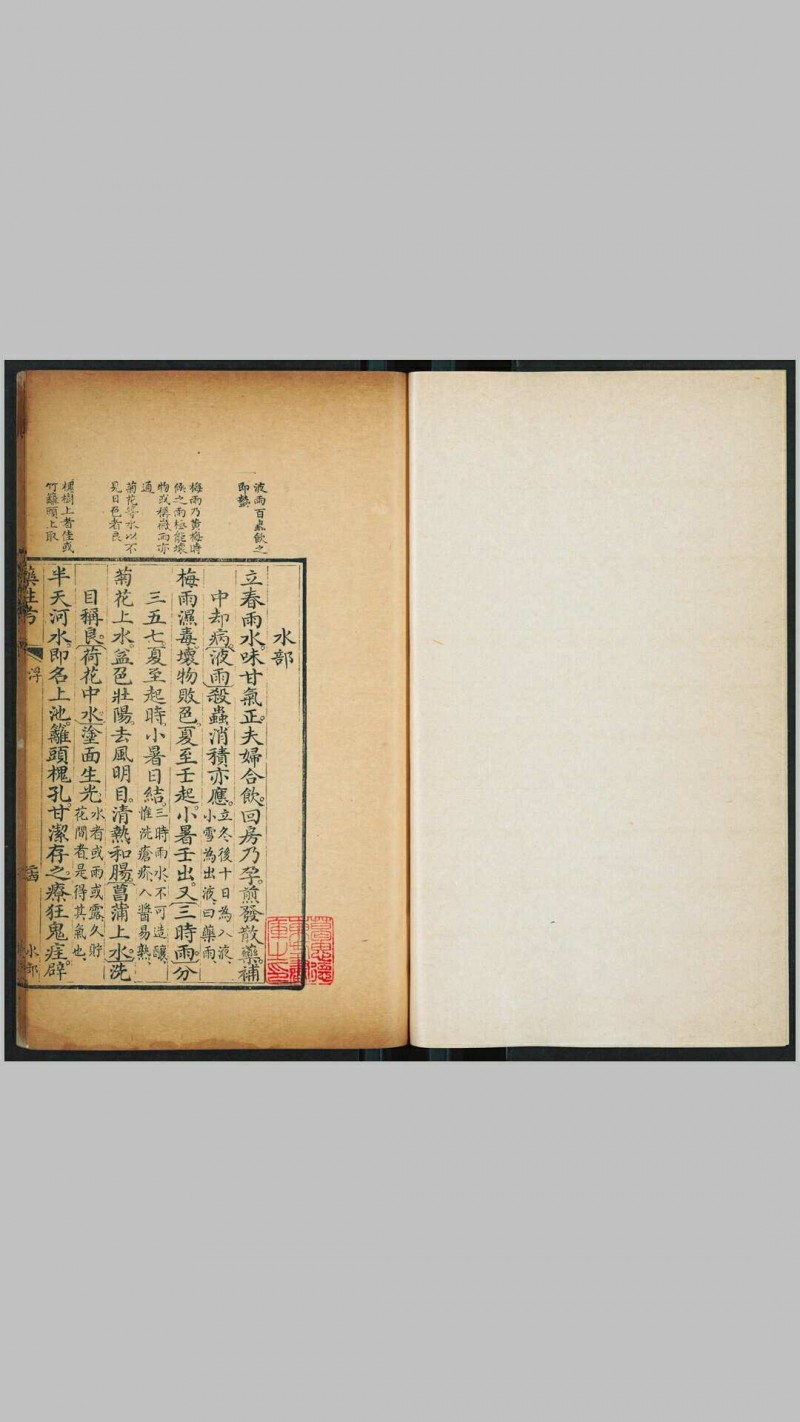 液雨百蟲飲之
即蟄
梅雨乃黃梅時
候之雨極能壞
物或稱黴雨亦
通
菊花等水以不
見日色者良
槐樹上者佳或
竹籬頭上取
水部
立春雨水。味甘氣正。夫婦合飲。回房乃孕。煎發散藥。補
中却病。液雨殺蟲消積亦應。立冬後十日為入液、
小雪為出液、曰藥雨、
梅雨濕毒。壞物敗色。夏至壬起。小暑壬出。又三時雨。分
三五七。夏至起時。小暑日結。三時雨水、不可造釀、
惟洗瘡疥、入醬易熟、
菊花上水。益色壯陽。去風明目。清熱和腸。菖蒲上水。洗
目稱良。荷花中水。塗面生光。水者或雨或露、久貯
花間者、是得其氣也、
半天河水。即名上池。籬頭槐孔。甘潔存之。療狂鬼疰。辟
藥性考
水部